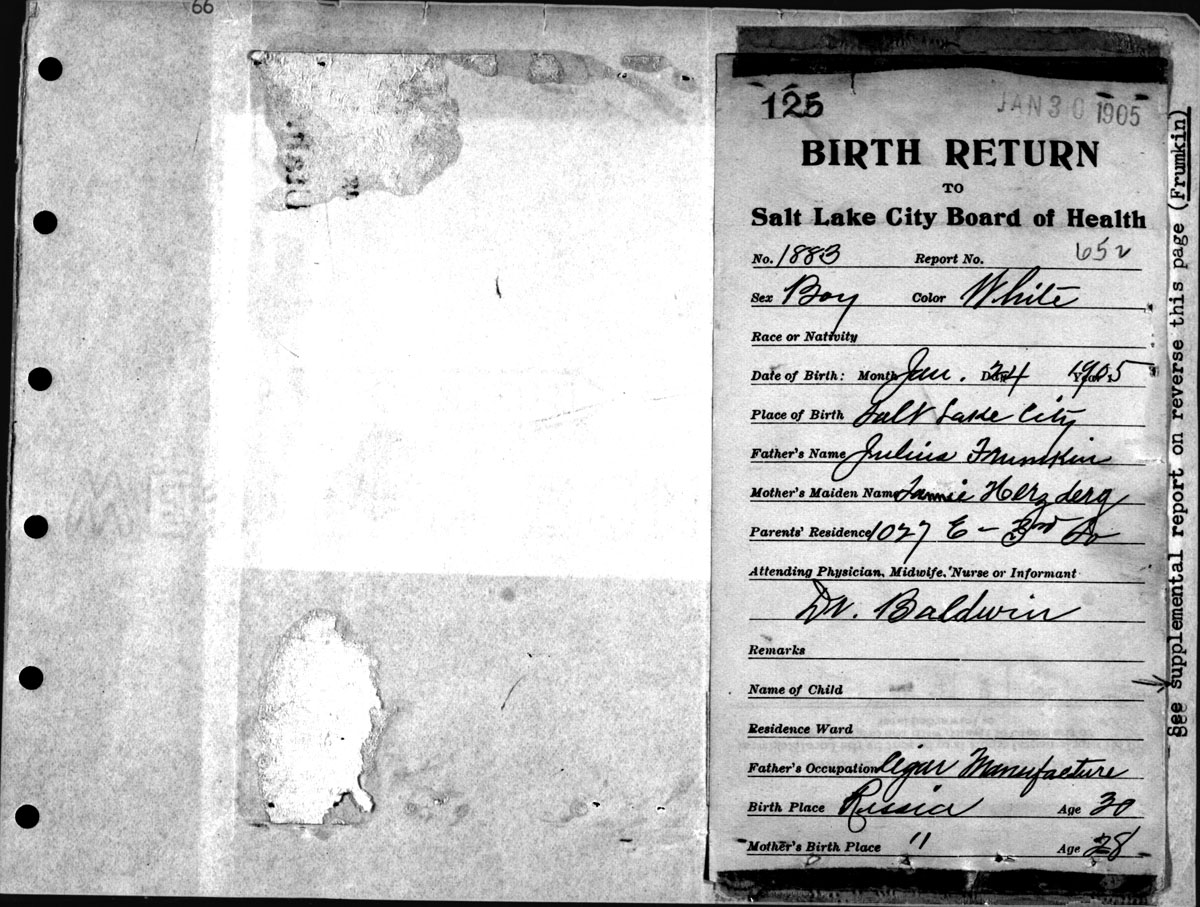 66
Utah.
125
JAN 30 1905
BIRTH RETURN
TO
Salt Lake City Board of Health
No. 1883 Report No. 652
Sex Boy Color White
Race or Nativity
Date of Birth: Month Jan. Day 24 Year 1905
Place of Birth Salt Lake City
Father's Name Julius Frumkin
Mother's Maiden Name Fannie Herzberg
Parents' Residence 1027 E - 3rd So
Attending Physician, Midwife, Nurse or Informant
Dr. Baldwin
Remarks
Name of Child
Residence Ward
Father's Occupation Cigar Manufacture
Birth Place Russia Age 30
Mother's Birth Place " Age 28
See supplemental report on reverse this page (Frumkin)